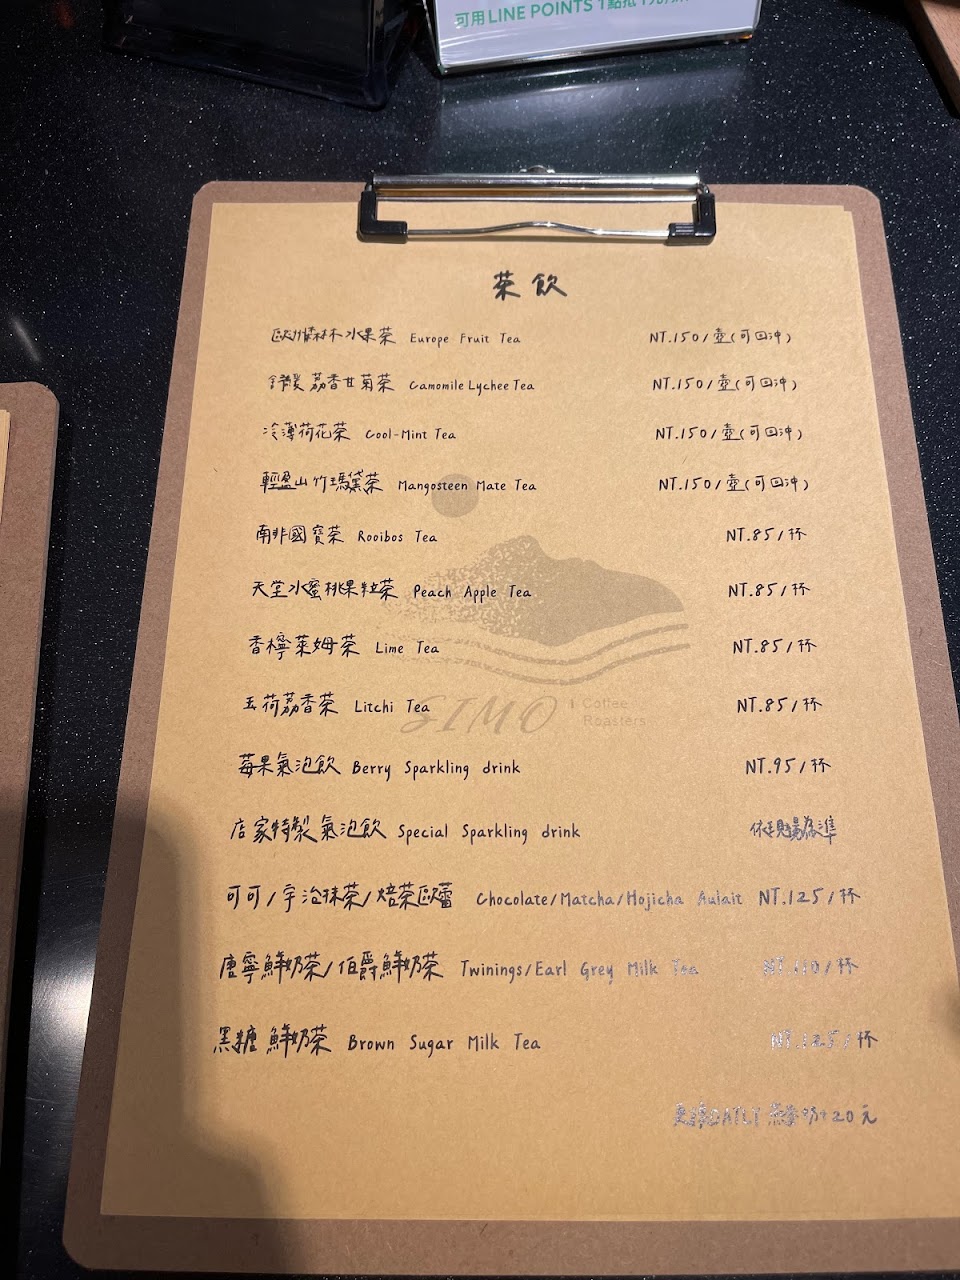 可用 LINE POINTS 1點抵1元
茶飲
歐洲森林水果茶 Europe Fruit Tea NT.150/壺(可回沖)
特製荔香甘菊茶 Camomile Lychee Tea NT.150/壺(可回沖)
冷薄荷花茶 Cool-Mint Tea NT.150/壺(可回沖)
輕盈山竹瑪黛茶 Mangosteen Mate Tea NT.150/壺(可回沖)
南非國寶茶 Rooibos Tea NT.85/杯
天堂水蜜桃果粒茶 Peach Apple Tea NT.85/杯
香檸萊姆茶 Lime Tea NT.85/杯
玉荷荔香茶 Litchi Tea NT.85/杯
SIMO Coffee Roasters
莓果氣泡飲 Berry Sparkling drink NT.95/杯
店家特製氣泡飲 Special Sparkling drink 依現場為準
可可/宇治抹茶/焙茶歐蕾 Chocolate/Matcha/Hojicha Aulait NT.125/杯
唐寧鮮奶茶/伯爵鮮奶茶 Twinings/Earl Grey Milk Tea NT.110/杯
黑糖鮮奶茶 Brown Sugar Milk Tea NT.125/杯
更換OATLY燕麥奶+20元